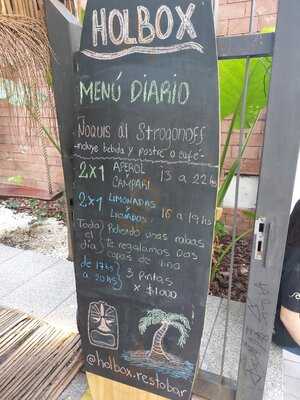 HOLBOX
MENÚ DIARIO
Ñoquis al Strogonoff
-incluye bebida y postre o café-
2x1 APEROL Y CAMPARI 13 a 22hs
2x1 LIMONADAS Y LICUADOS 16 a 19hs
Todo el día } Pidiendo unas rabas te regalamos dos copas de sina
de 17hs a 20hs } 3 pintas x $1000
@holbox.restobar